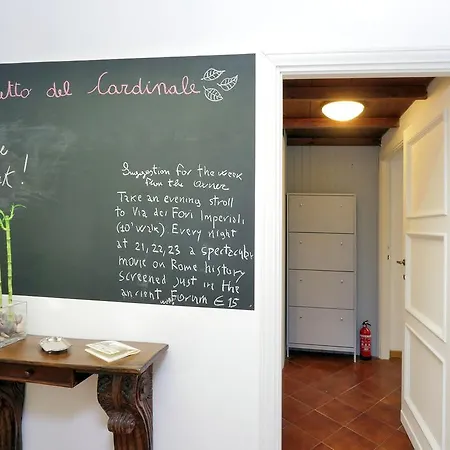 etto del Cardinale
e
k!
Suggestion for the week
from the owner
Take an evening stroll
to Via dei Fori Imperiali
(10' walk) Every night
at 21, 22, 23 a spectacular
movie on Rome history
screened just in the
ancient Forum € 15